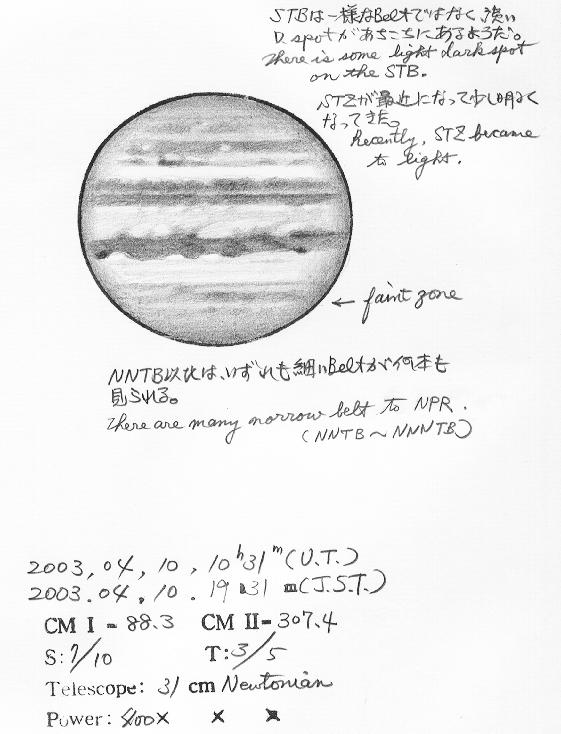 STBは一様なBeltではなく淡い
D. spotがあちこちにあるようだ。
There is some light dark spot
on the STB.
STZが最近になって少し明るく
なってきた。
Recently, STZ became
to light.
← faint zone
NNTB以北は、いずれも細いBeltが何本も
見られる。
There are many norrow belt to NPR.
(NNTB～NNNTB)
2003, 04, 10, 10h31m (U.T.)
2003.04.10. 19 31 m(J.S.T.)
CM I = 88.3 CM II= 307.4
S: 7/10 T: 3/5
Telescope: 31 cm Newtonian
Power: 400× × ×